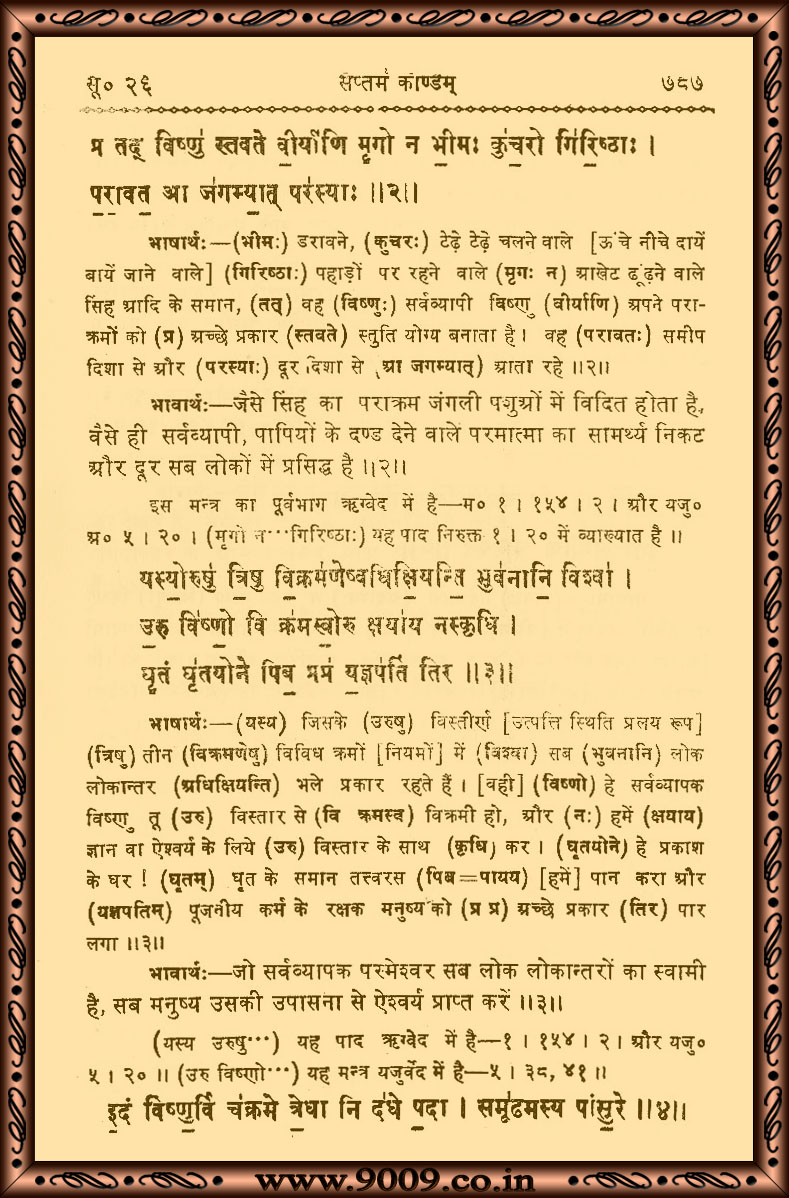 सू० २६ सप्तमं काण्डम् ७८७
प्र तद् विष्णु॑ स्तवते वी॒र्या॑णि मृ॒गो न भी॒मः कु॑च॒रो गि॑रि॒ष्ठाः ।
प॒रा॒वत॒ आ ज॑गम्या॒त् पर॑स्याः ॥२॥
भाषार्थः—(भीमः) डरावने, (कुचरः) टेढ़े टेढ़े चलने वाले [ऊंचे नीचे दायें
बायें जाने वाले] (गिरिष्ठाः) पहाड़ों पर रहने वाले (मृगः न) आखेट ढूंढ़ने वाले
सिंह आदि के समान, (तत्) वह (विष्णुः) सर्वव्यापी विष्णु (वीर्याणि) अपने परा-
क्रमों को (प्र) अच्छे प्रकार (स्तवते) स्तुति योग्य बनाता है। वह (परावतः) समीप
दिशा से और (परस्याः) दूर दिशा से (आ जगम्यात्) आता रहे ॥२॥
भावार्थः—जैसे सिंह का पराक्रम जंगली पशुओं में विदित होता है,
वैसे ही सर्वव्यापी, पापियों के दण्ड देने वाले परमात्मा का सामर्थ्य निकट
और दूर सब लोकों में प्रसिद्ध है ॥२॥
इस मन्त्र का पूर्वभाग ऋग्वेद में है—म० १ । १५४ । २ । और यजु०
अ० ५ । २० । (मृगो न···गिरिष्ठाः) यह पाद निरुक्त १ । २० में व्याख्यात है ॥
यस्यो॒रुषु॑ त्रि॒षु वि॒क्रम॑णेष्वधिक्षि॒यन्ति॒ भुव॑नानि॒ विश्वा॑ ।
उ॒रु वि॑ष्णो॒ वि क्र॑मस्वो॒रु क्षया॑य नस्कृधि ।
घृ॒तं घृ॑तयोने पिब॒ प्रप्र॑ य॒ज्ञप॑तिं तिर ॥३॥
भाषार्थः—(यस्य) जिसके (उरुषु) विस्तीर्ण [उत्पत्ति स्थिति प्रलय रूप]
(त्रिषु) तीन (विक्रमणेषु) विविध क्रमों [नियमों] में (विश्वा) सब (भुवनानि) लोक
लोकान्तर (अधिक्षियन्ति) भले प्रकार रहते हैं । [वही] (विष्णो) हे सर्वव्यापक
विष्णु तू (उरु) विस्तार से (वि क्रमस्व) विक्रमी हो, और (नः) हमें (क्षयाय)
ज्ञान वा ऐश्वर्य के लिये (उरु) विस्तार के साथ (कृधि) कर । (घृतयोने) हे प्रकाश
के घर ! (घृतम्) घृत के समान तत्त्वरस (पिब=पायय) [हमें] पान करा और
(यज्ञपतिम्) पूजनीय कर्म के रक्षक मनुष्य को (प्र प्र) अच्छे प्रकार (तिर) पार
लगा ॥३॥
भावार्थः—जो सर्वव्यापक परमेश्वर सब लोक लोकान्तरों का स्वामी
है, सब मनुष्य उसकी उपासना से ऐश्वर्य प्राप्त करें ॥३॥
(यस्य उरुषु···) यह पाद ऋग्वेद में है—१ । १५४ । २ । और यजु०
५ । २० ॥ (उरु विष्णो···) यह मन्त्र यजुर्वेद में है—५ । ३८, ४१ ॥
इ॒दं विष्णु॒र्वि च॑क्रमे त्रे॒धा नि द॑धे प॒दा । समू॑ढमस्य पांसु॒रे ॥४॥
www.9009.co.in